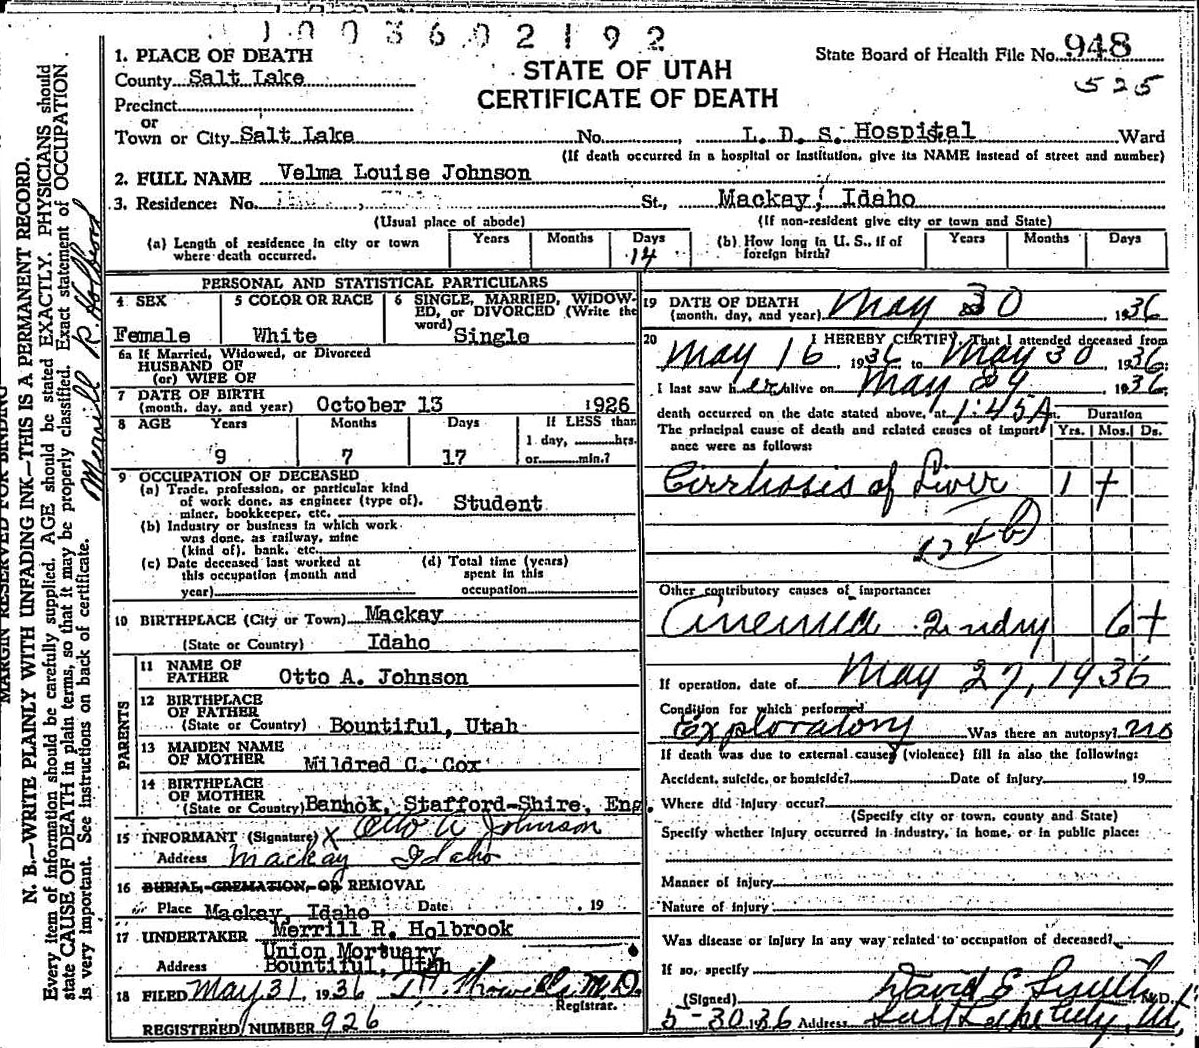 1003602192
1. PLACE OF DEATH
County Salt Lake
Precinct
or
Town or City Salt Lake No. L. D. S. Hospital Ward
(If death occurred in a hospital or institution, give its NAME instead of street and number)
STATE OF UTAH
CERTIFICATE OF DEATH
State Board of Health File No. 948
525
2. FULL NAME Velma Louise Johnson
3. Residence: No. St., Mackay, Idaho
(Usual place of abode) (If non-resident give city or town and State)
(a) Length of residence in city or town where death occurred. Years Months Days 14
(b) How long in U. S., if of foreign birth? Years Months Days
PERSONAL AND STATISTICAL PARTICULARS
4 SEX Female
5 COLOR OR RACE White
6 SINGLE, MARRIED, WIDOWED, or DIVORCED (Write the word) Single
6a If Married, Widowed, or Divorced
HUSBAND OF
(or) WIFE OF
7 DATE OF BIRTH
(month, day, and year) October 13 1926
8 AGE Years Months Days If LESS than
9 7 17 1 day, hrs.
or min.?
9 OCCUPATION OF DECEASED
(a) Trade, profession, or particular kind
of work done, as engineer (type of),
miner, bookkeeper, etc. Student
(b) Industry or business in which work
was done, as railway, mine
(kind of), bank, etc.
(c) Date deceased last worked at
this occupation (month and
year)
(d) Total time (years)
spent in this
occupation
10 BIRTHPLACE (City or Town) Mackay
(State or Country) Idaho
PARENTS
11 NAME OF
FATHER Otto A. Johnson
12 BIRTHPLACE
OF FATHER
(State or Country) Bountiful, Utah
13 MAIDEN NAME
OF MOTHER Mildred C. Cox
14 BIRTHPLACE
OF MOTHER
(State or Country) Banhok, Stafford-Shire, Eng.
15 INFORMANT (Signature) X Otto A Johnson
Address Mackay Idaho
16 BURIAL, CREMATION, OR REMOVAL
Place Mackay, Idaho Date 19
17 UNDERTAKER Merrill R. Holbrook
Union Mortuary
Address Bountiful, Utah
18 FILED May 31 1936 M. D.
Registrar.
REGISTERED NUMBER 926
19 DATE OF DEATH
(month, day, and year) May 30 1936
20 I HEREBY CERTIFY, That I attended deceased from
May 16 1936 to May 30, 1936;
I last saw her alive on May 29 1936,
death occurred on the date stated above, at 1:45A m. Duration
The principal cause of death and related causes of import- Yrs. Mos. Ds.
ance were as follows:
Cirrhosis of Liver 1 +
124b
Other contributory causes of importance:
Anemia 2ndry 6+
If operation, date of May 27, 1936
Condition for which performed
Exploratory Was there an autopsy? no
If death was due to external causes (violence) fill in also the following:
Accident, suicide, or homicide? Date of injury , 19
Where did injury occur?
(Specify city or town, county and State)
Specify whether injury occurred in industry, in home, or in public place:
Manner of injury
Nature of injury
Was disease or injury in any way related to occupation of deceased?
If so, specify
(Signed) David E Smith M. D.
5-30 1936 Address Salt Lake City, Ut.
MARGIN RESERVED FOR BINDING
N. B.—WRITE PLAINLY WITH UNFADING INK—THIS IS A PERMANENT RECORD.
Every item of information should be carefully supplied. AGE should be stated EXACTLY. PHYSICIANS should
state CAUSE OF DEATH in plain terms, so that it may be properly classified. Exact statement of OCCUPATION
is very important. See instructions on back of certificate.
Merrill R Holbrook